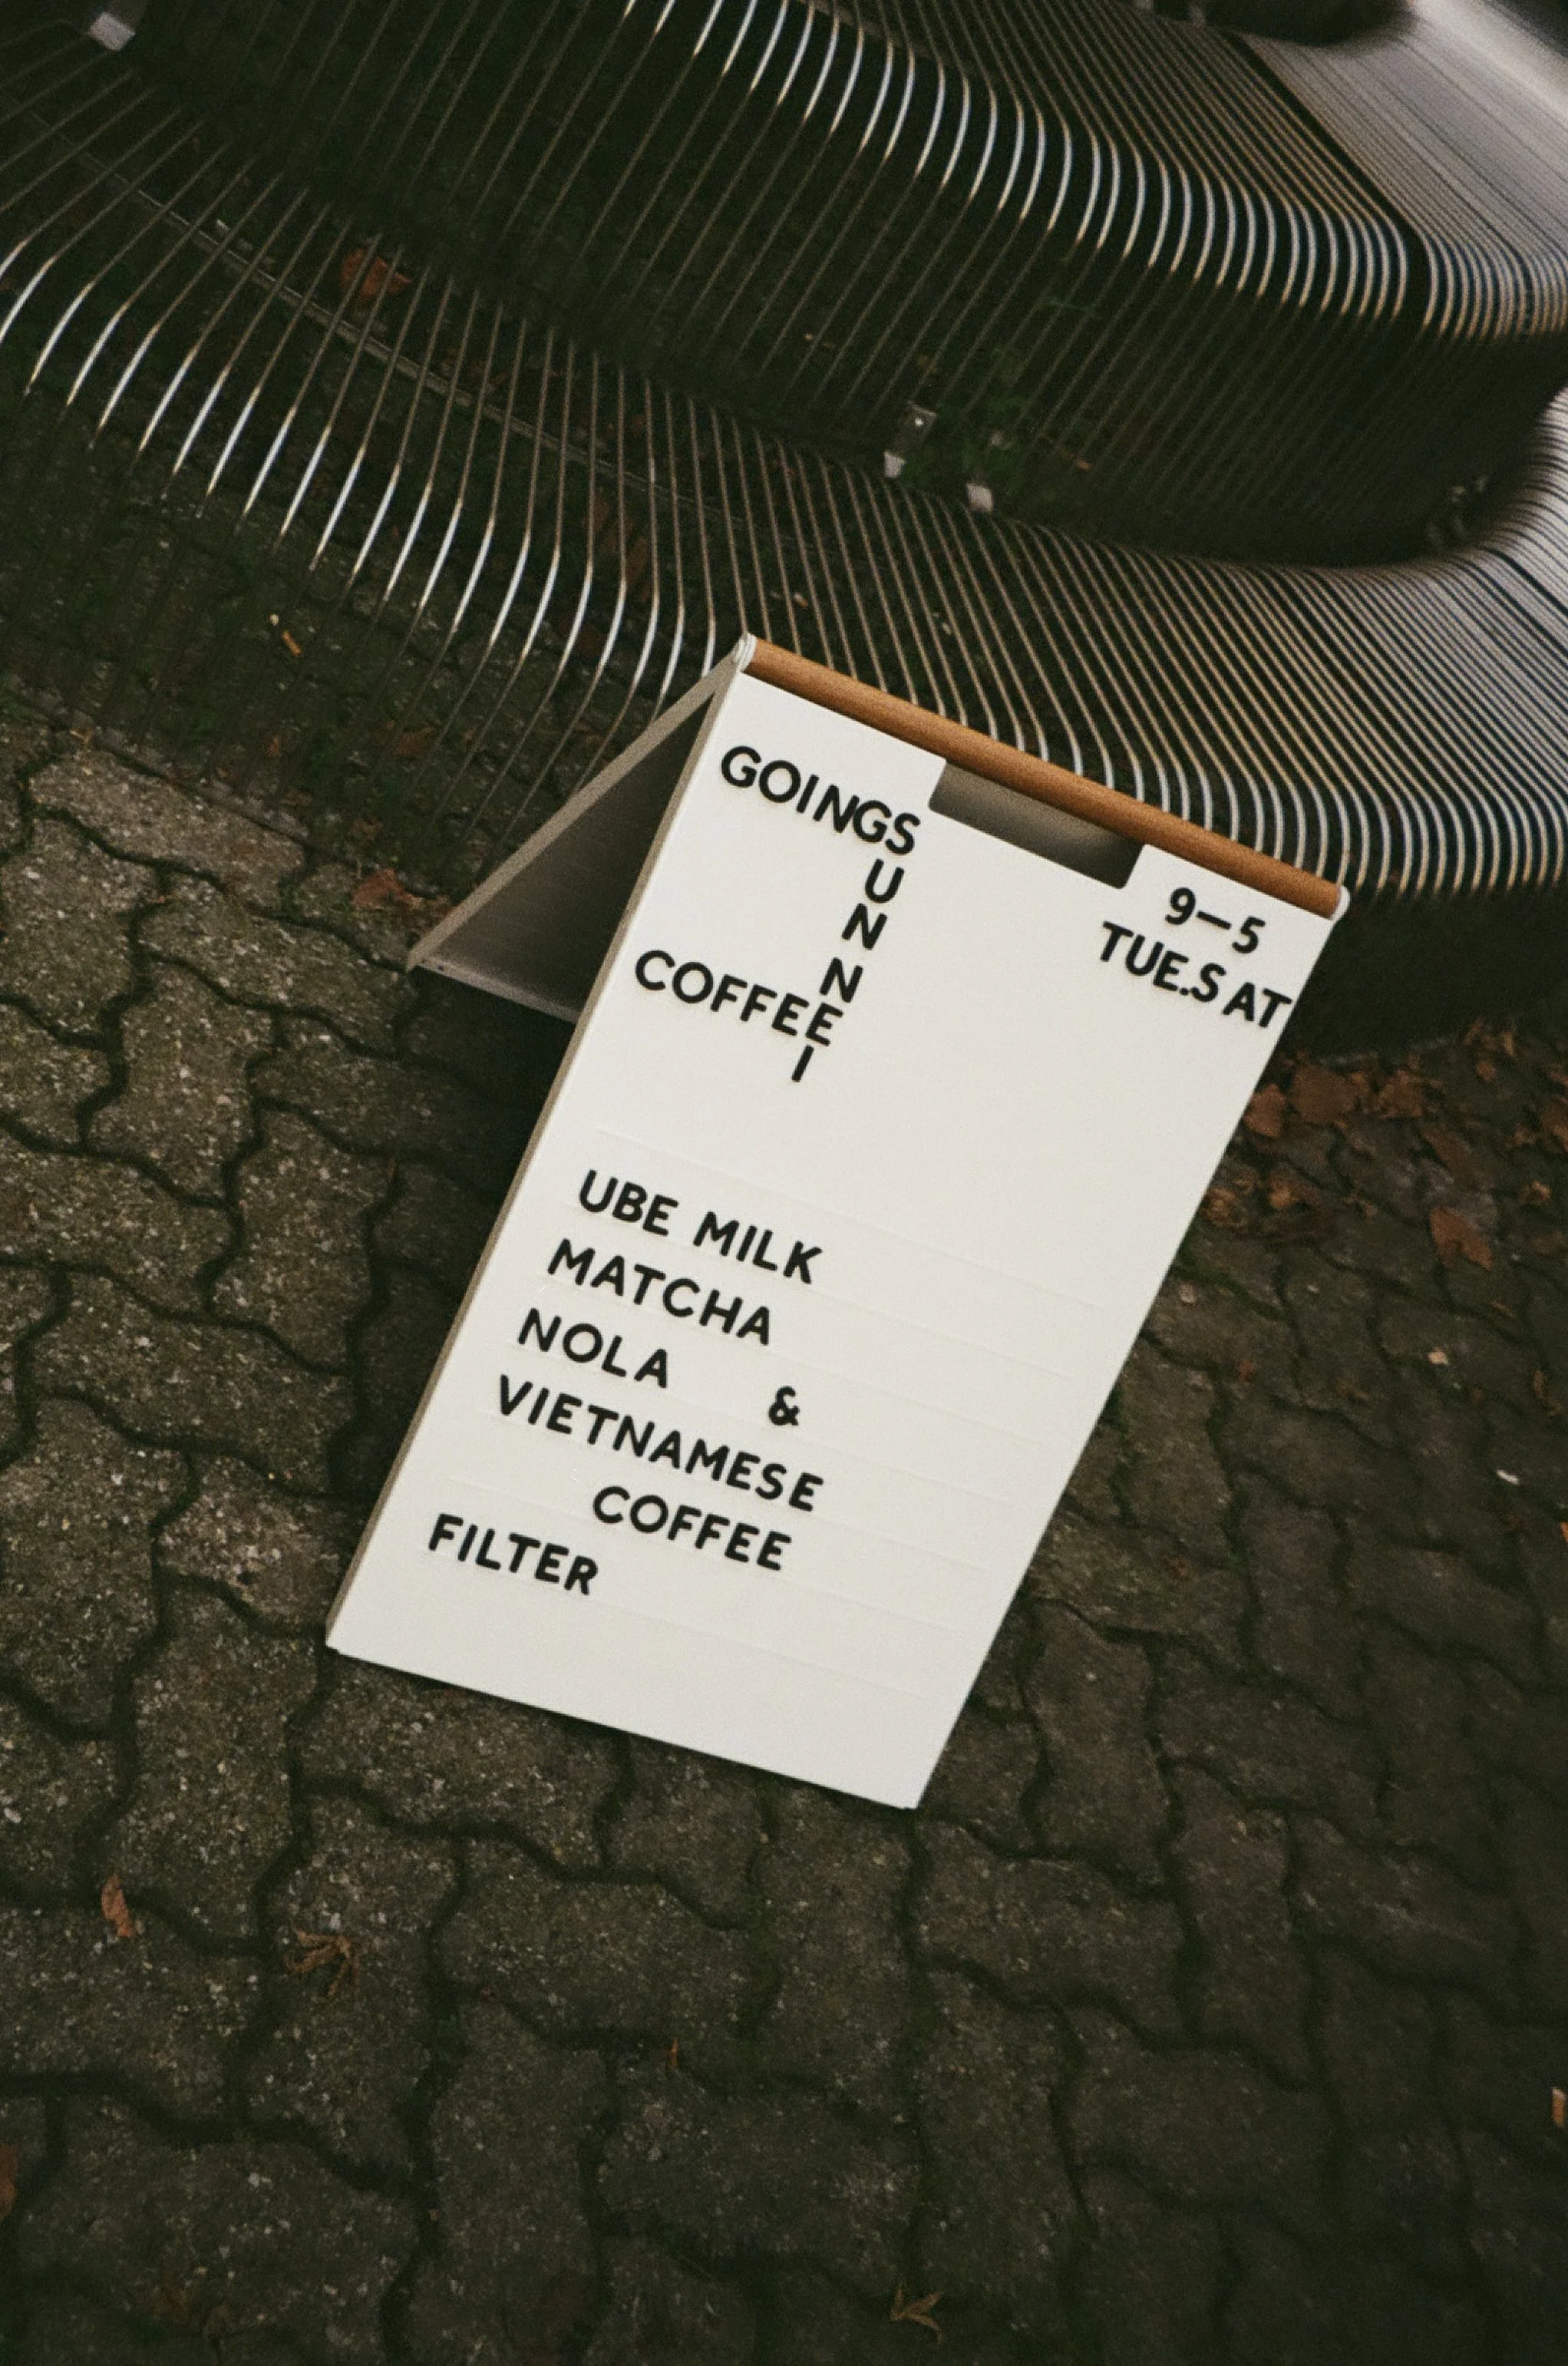 GOINGS
U
N
N
COFFEE
I
9–5
TUE.SAT
UBE MILK
MATCHA
NOLA &
VIETNAMESE
COFFEE
FILTER